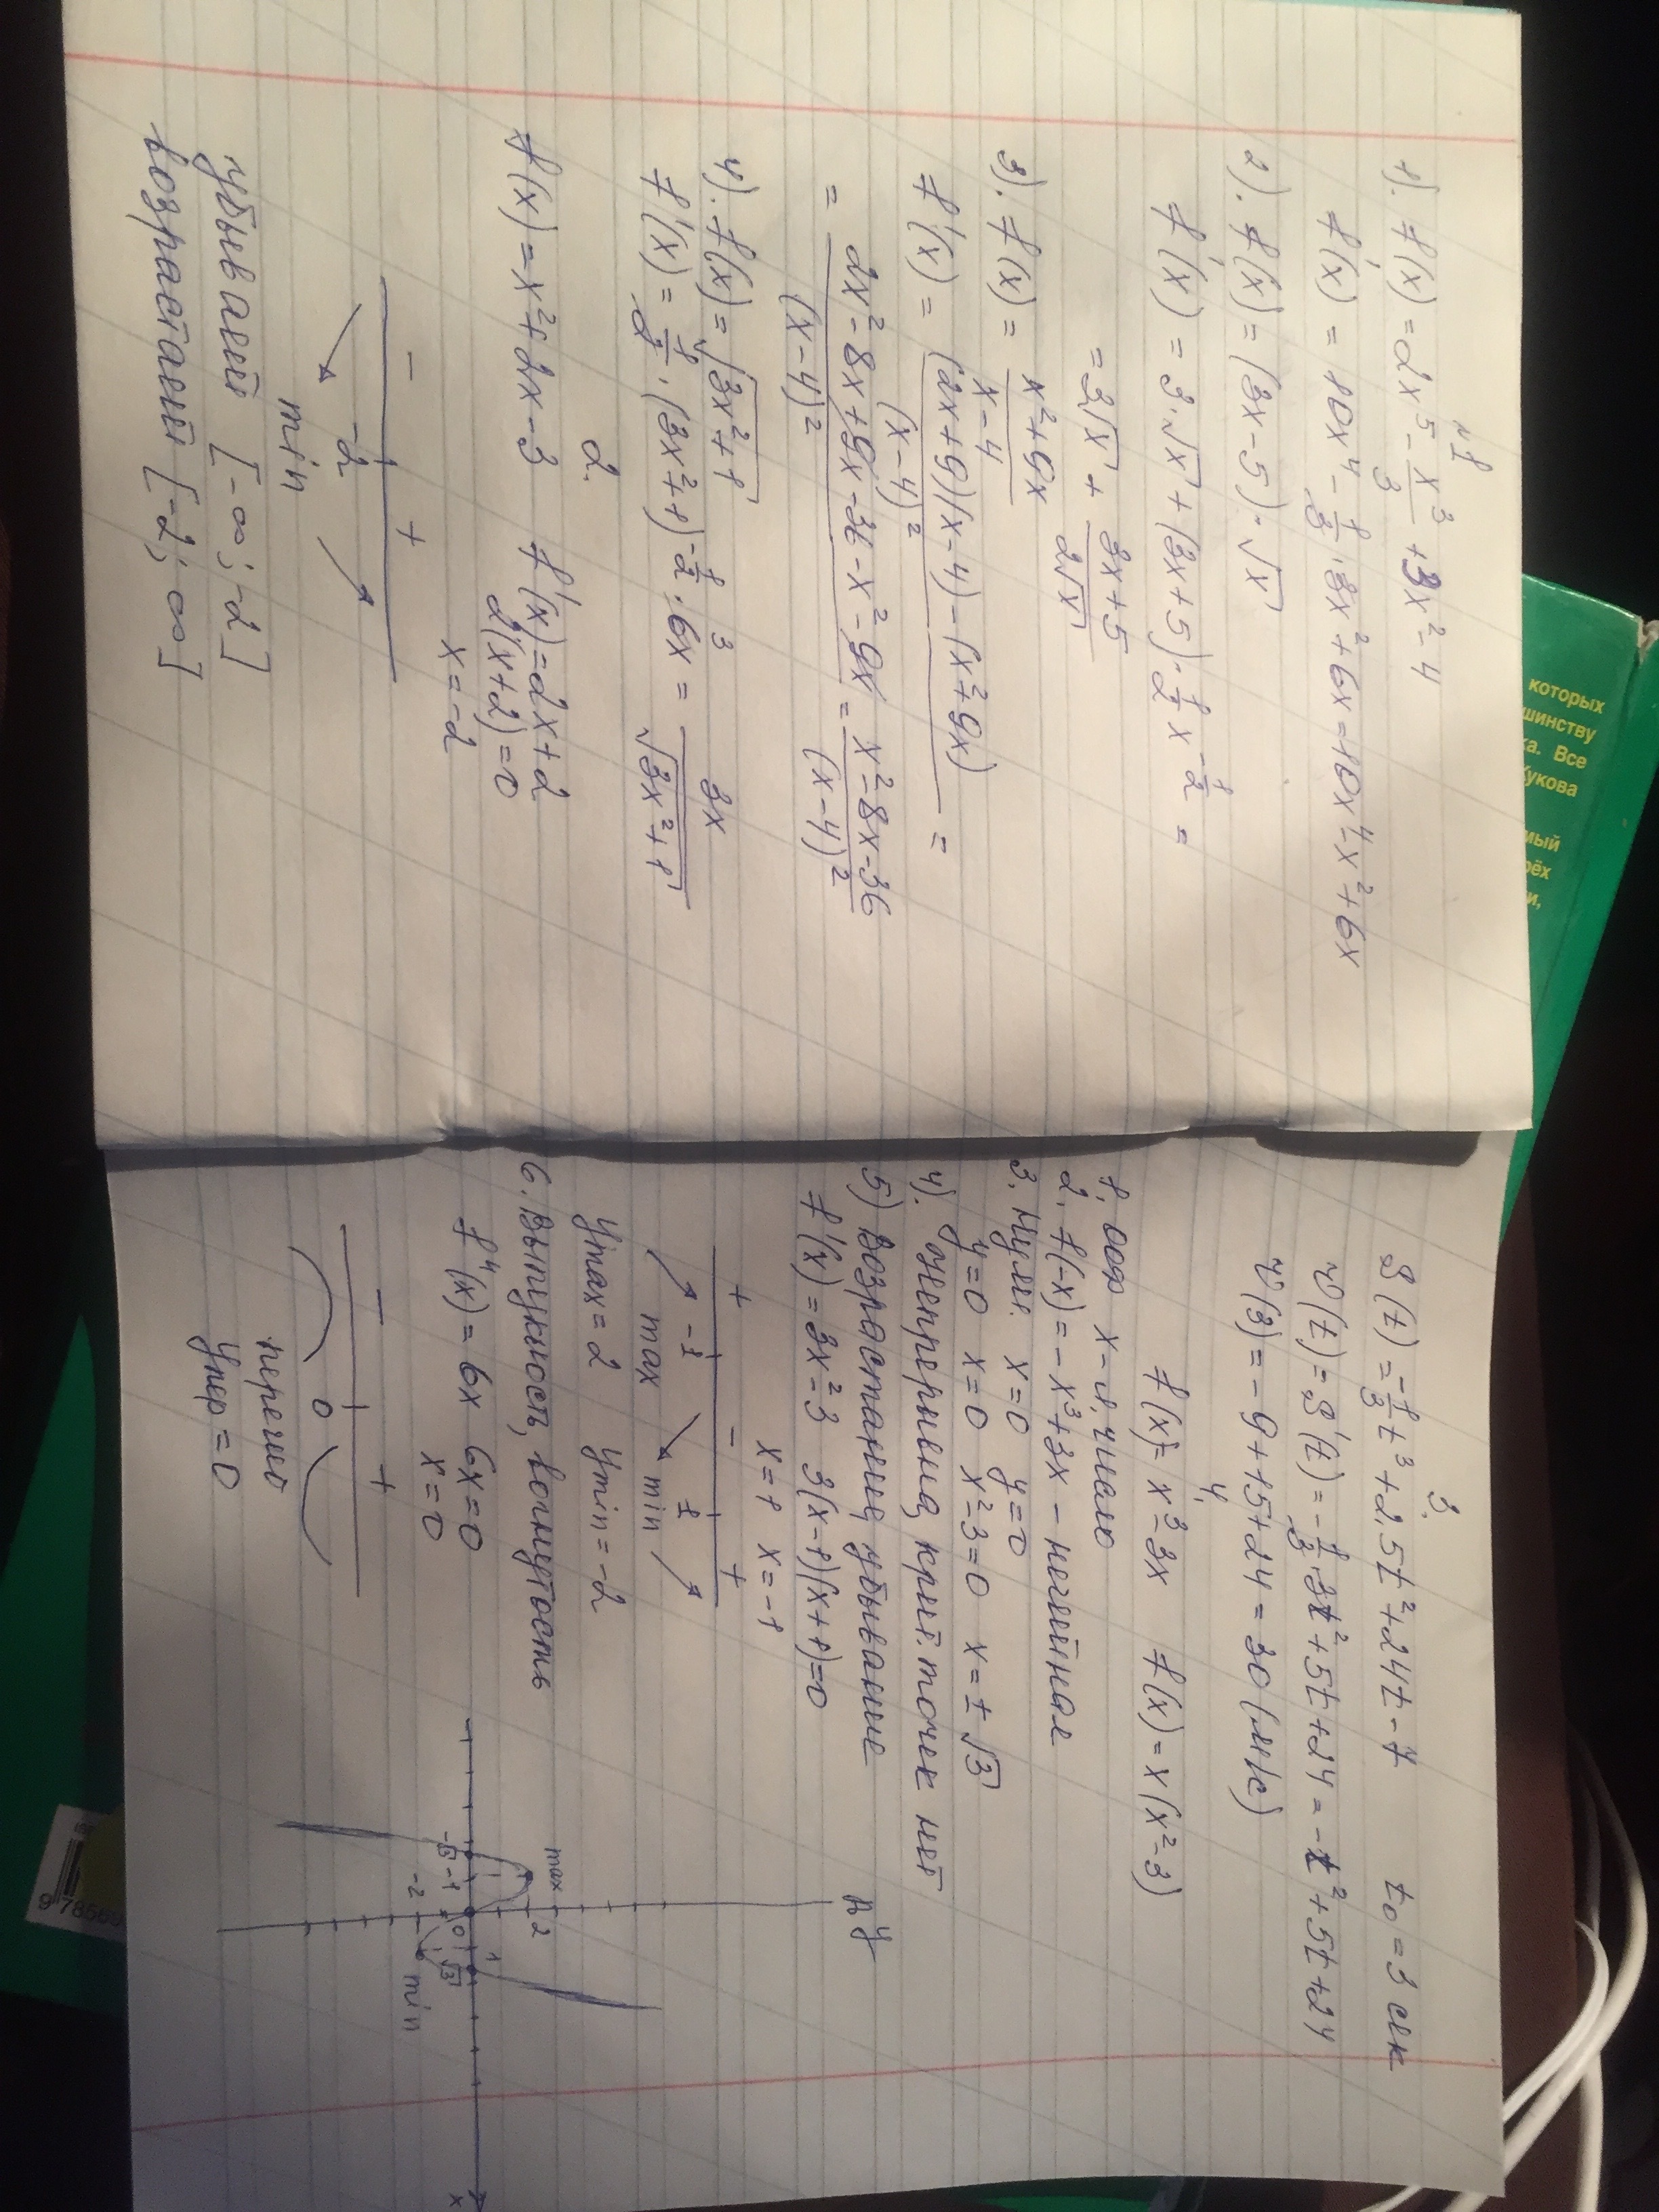 №1
1). f(x) = 2x⁵ - x³/3 + 3x² - 4
f'(x) = 10x⁴ - 1/3 · 3x² + 6x = 10x⁴ - x² + 6x
2). f(x) = (3x - 5) · √x
f'(x) = 3 · √x + (3x + 5) · 1/2 x^(-1/2) =
= 3√x + (3x + 5)/(2√x)
3). f(x) = (x² + 9x)/(x - 4)
f'(x) = ((2x + 9)(x - 4) - (x² + 9x))/(x - 4)² =
= (2x² - 8x + 9x - 36 - x² - 9x)/(x - 4)² = (x² - 8x - 36)/(x - 4)²
4). f(x) = √(3x² + 1)
f'(x) = 1/2 · (3x² + 1)^(-1/2) · 6x = 3x/√(3x² + 1)
3
2.
f(x) = x² + 2x - 3 f'(x) = 2x + 2
2(x + 2) = 0
x = -2
- +
-2
min
убывает [-∞; -2]
возрастает [-2; ∞]
3.
S(t) = -1/3 t³ + 2,5t² + 24t - 7 t₀ = 3 сек
v(t) = S'(t) = -1/3 · 3t² + 5t + 24 = -t² + 5t + 24
v(3) = -9 + 15 + 24 = 30 (м/с)
4.
f(x) = x³ - 3x f(x) = x(x² - 3)
1. ооф x - число
2. f(-x) = -x³ + 3x - нечетная
3. Нули: x = 0 y = 0
y = 0 x = 0 x² - 3 = 0 x = ± √3
4). непрерывна, крит. точек нет
5) возрастание, убывание
f'(x) = 3x² - 3 3(x - 1)(x + 1) = 0
x = 1 x = -1
+ - +
-1 1
max min
ymax = 2 ymin = -2
6. Выпуклость, вогнутость
f"(x) = 6x 6x = 0
x = 0
- +
0
перегиб
yпер = 0
y
max 2
-√3 -1 0 1 √3 x
-2 min
которых
шинству
ка. Все
Жукова
мый
рёх
и,
9 78569